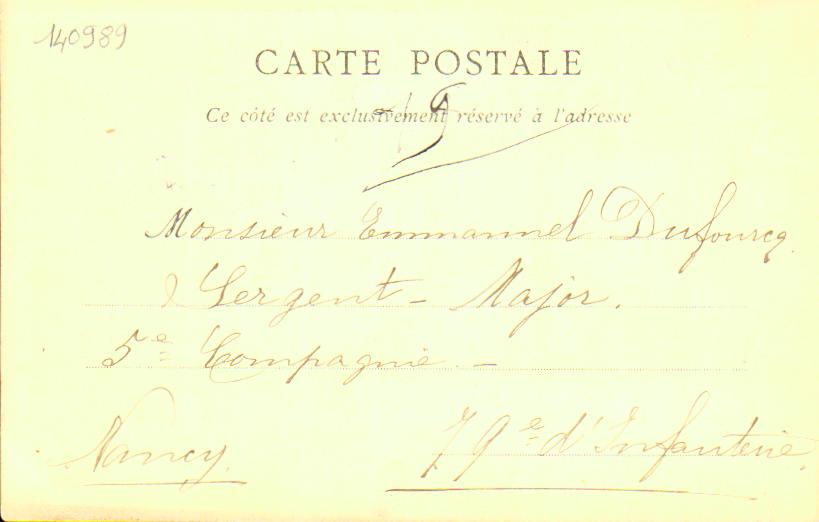 140989
CARTE POSTALE
Ce côté est exclusivement réservé à l'adresse
Monsieur Emmanuel Dufourcq
Sergent - Major.
5e Compagnie. -
79e d'Infanterie.
Nancy.